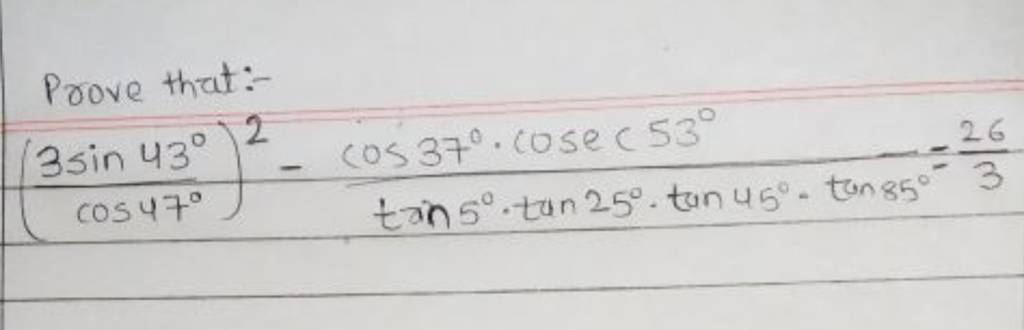 Prove that:-
(3sin 43° / cos 47°)² - cos 37° . cosec 53° / tan 5° . tan 25° . tan 45° . tan 85° = 26/3